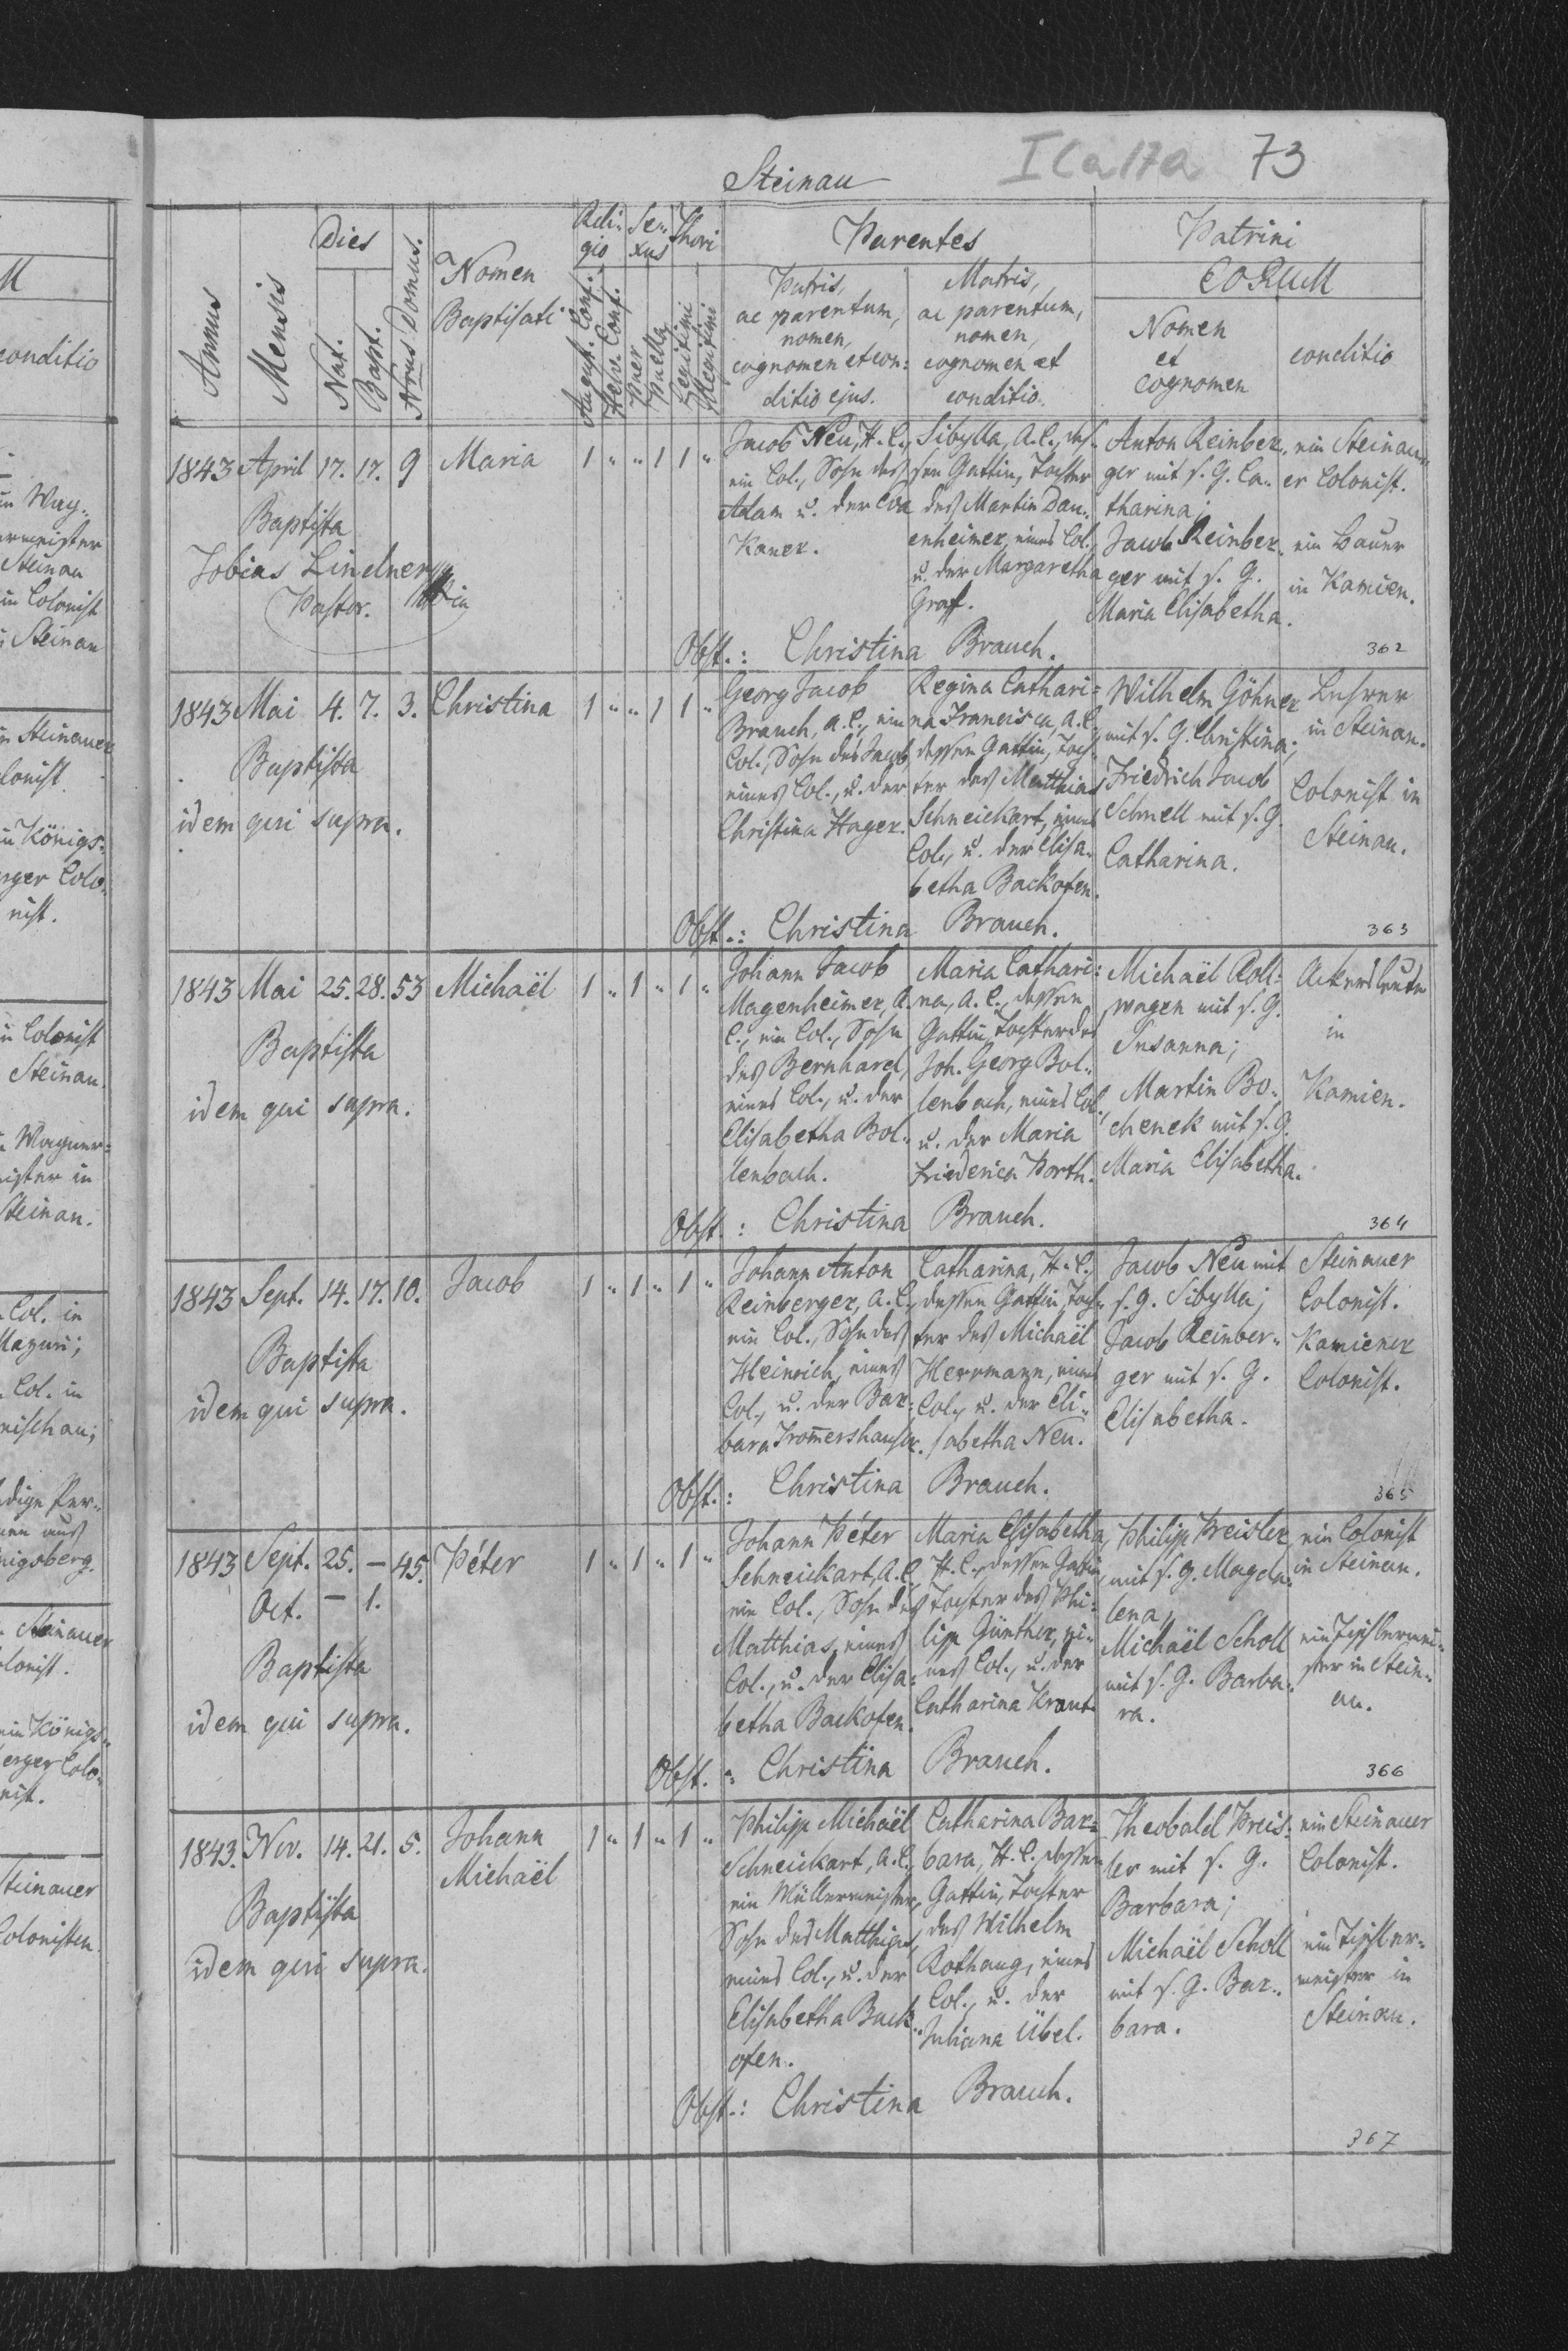 ICa17a 73
Steinau
Annus
Mensis
Dies
Nat.
Bapt.
Nrus Domus.
Nomen
Baptisati
Reli-
gio
August. Conf.
Helv. Conf.
Se-
xus
Puer
Puella
Thori
Legitimi
Illegitimi
Parentes
Patris,
ac parentum,
nomen,
cognomen et con-
ditio ejus.
Matris,
ac parentum,
nomen,
cognomen et
conditio.
Patrini
EORUM
Nomen
et
Cognomen
conditio
1843 April 17. 17. 9 Maria 1 " " 1 1 "
Baptista
Tobias Lindner
Pastor.
Jacob Neu, H. C.,
ein Col., Sohn des
Adam u. der Eva
Kaner.
Sibylla, A. C., des-
sen Gattin, Tochter
des Martin Dau-
enheimer, eines Col.,
u. der Margaretha
Graff.
Anton Reinber-
ger mit s. G. Ca-
tharina;
Jacob Reinber-
ger mit s. G.
Maria Elisabetha.
ein Steinau-
er Colonist.
ein Bauer
in Kamien.
Obst.: Christina Brauch.
362
1843 Mai 4. 7. 3. Christina 1 " " 1 1 "
Baptista
idem qui supra.
Georg Jacob
Brauch, A. C., ein
Col., Sohn des Jacob,
eines Col., u. der
Christina Hager.
Regina Cathari-
na Francisca, A. C.,
dessen Gattin, Toch-
ter des Matthias
Schneickart, eines
Col., u. der Elisa-
betha Backofen.
Wilhelm Göhner
mit s. G. Christina;
Friedrich Jacob
Schnell mit s. G.
Catharina.
Lehrer
in Steinau.
Colonist in
Steinau.
Obst.: Christina Brauch.
363
1843 Mai 25. 28. 53 Michaël 1 " 1 " 1 "
Baptista
idem qui supra.
Johann Jacob
Magenheimer, A.
C., ein Col., Sohn
des Bernhard,
eines Col., u. der
Elisabetha Bol-
lenbach.
Maria Cathari-
na, A. C., dessen
Gattin, Tochter des
Joh. Georg Bol-
lenbach, eines Col.,
u. der Maria
Friederica Porth.
Michaël Roll-
wagen mit s. G.
Susanna;
Martin Bo-
chenek mit s. G.
Maria Elisabetha.
Ackersleute
in
Kamien.
Obst.: Christina Brauch.
364
1843 Sept. 14. 17. 10. Jacob 1 " 1 " 1 "
Baptista
idem qui supra.
Johann Anton
Reinberger, A. C.,
ein Col., Sohn des
Heinrich, eines
Col., u. der Bar-
bara Tromershauser.
Catharina, H. C.,
dessen Gattin, Toch-
ter des Michaël
Herrmann, eines
Col., u. der Eli-
sabetha Neu.
Jacob Neu mit
s. G. Sibylla;
Jacob Reinber-
ger mit s. G.
Elisabetha.
Steinauer
Colonist.
Kamiener
Colonist.
Obst.: Christina Brauch.
365
1843 Sept. 25. – 45. Péter 1 " 1 " 1 "
Oct. – 1.
Baptista
idem qui supra.
Johann Péter
Schneickart, A. C.,
ein Col., Sohn des
Matthias, eines
Col., u. der Elisa-
betha Backofen.
Maria Elisabetha,
H. C., dessen Gattin,
Tochter des Phi-
lipp Günther, ei-
nes Col., u. der
Catharina Kraut.
Philipp Preisler
mit s. G. Magda-
lena;
Michaël Scholl
mit s. G. Barba-
ra.
ein Colonist
in Steinau.
ein Tischlermei-
ster in Stein-
au.
Obst.: Christina Brauch.
366
1843. Nov. 14. 21. 5. Johann 1 " 1 " 1 "
Michaël
Baptista
idem qui supra.
Philipp Michaël
Schneickart, A. C.,
ein Müllermeister,
Sohn des Matthias,
eines Col., u. der
Elisabetha Back-
ofen.
Catharina Bar-
bara, H. C., dessen
Gattin, Tochter
des Wilhelm
Rothaug, eines
Col., u. der
Juliana Übel.
Theobald Preis-
ler mit s. G.
Barbara;
Michaël Scholl
mit s. G. Bar-
bara.
ein Steinauer
Colonist.
ein Tischler-
meister in
Steinau.
Obst.: Christina Brauch.
367